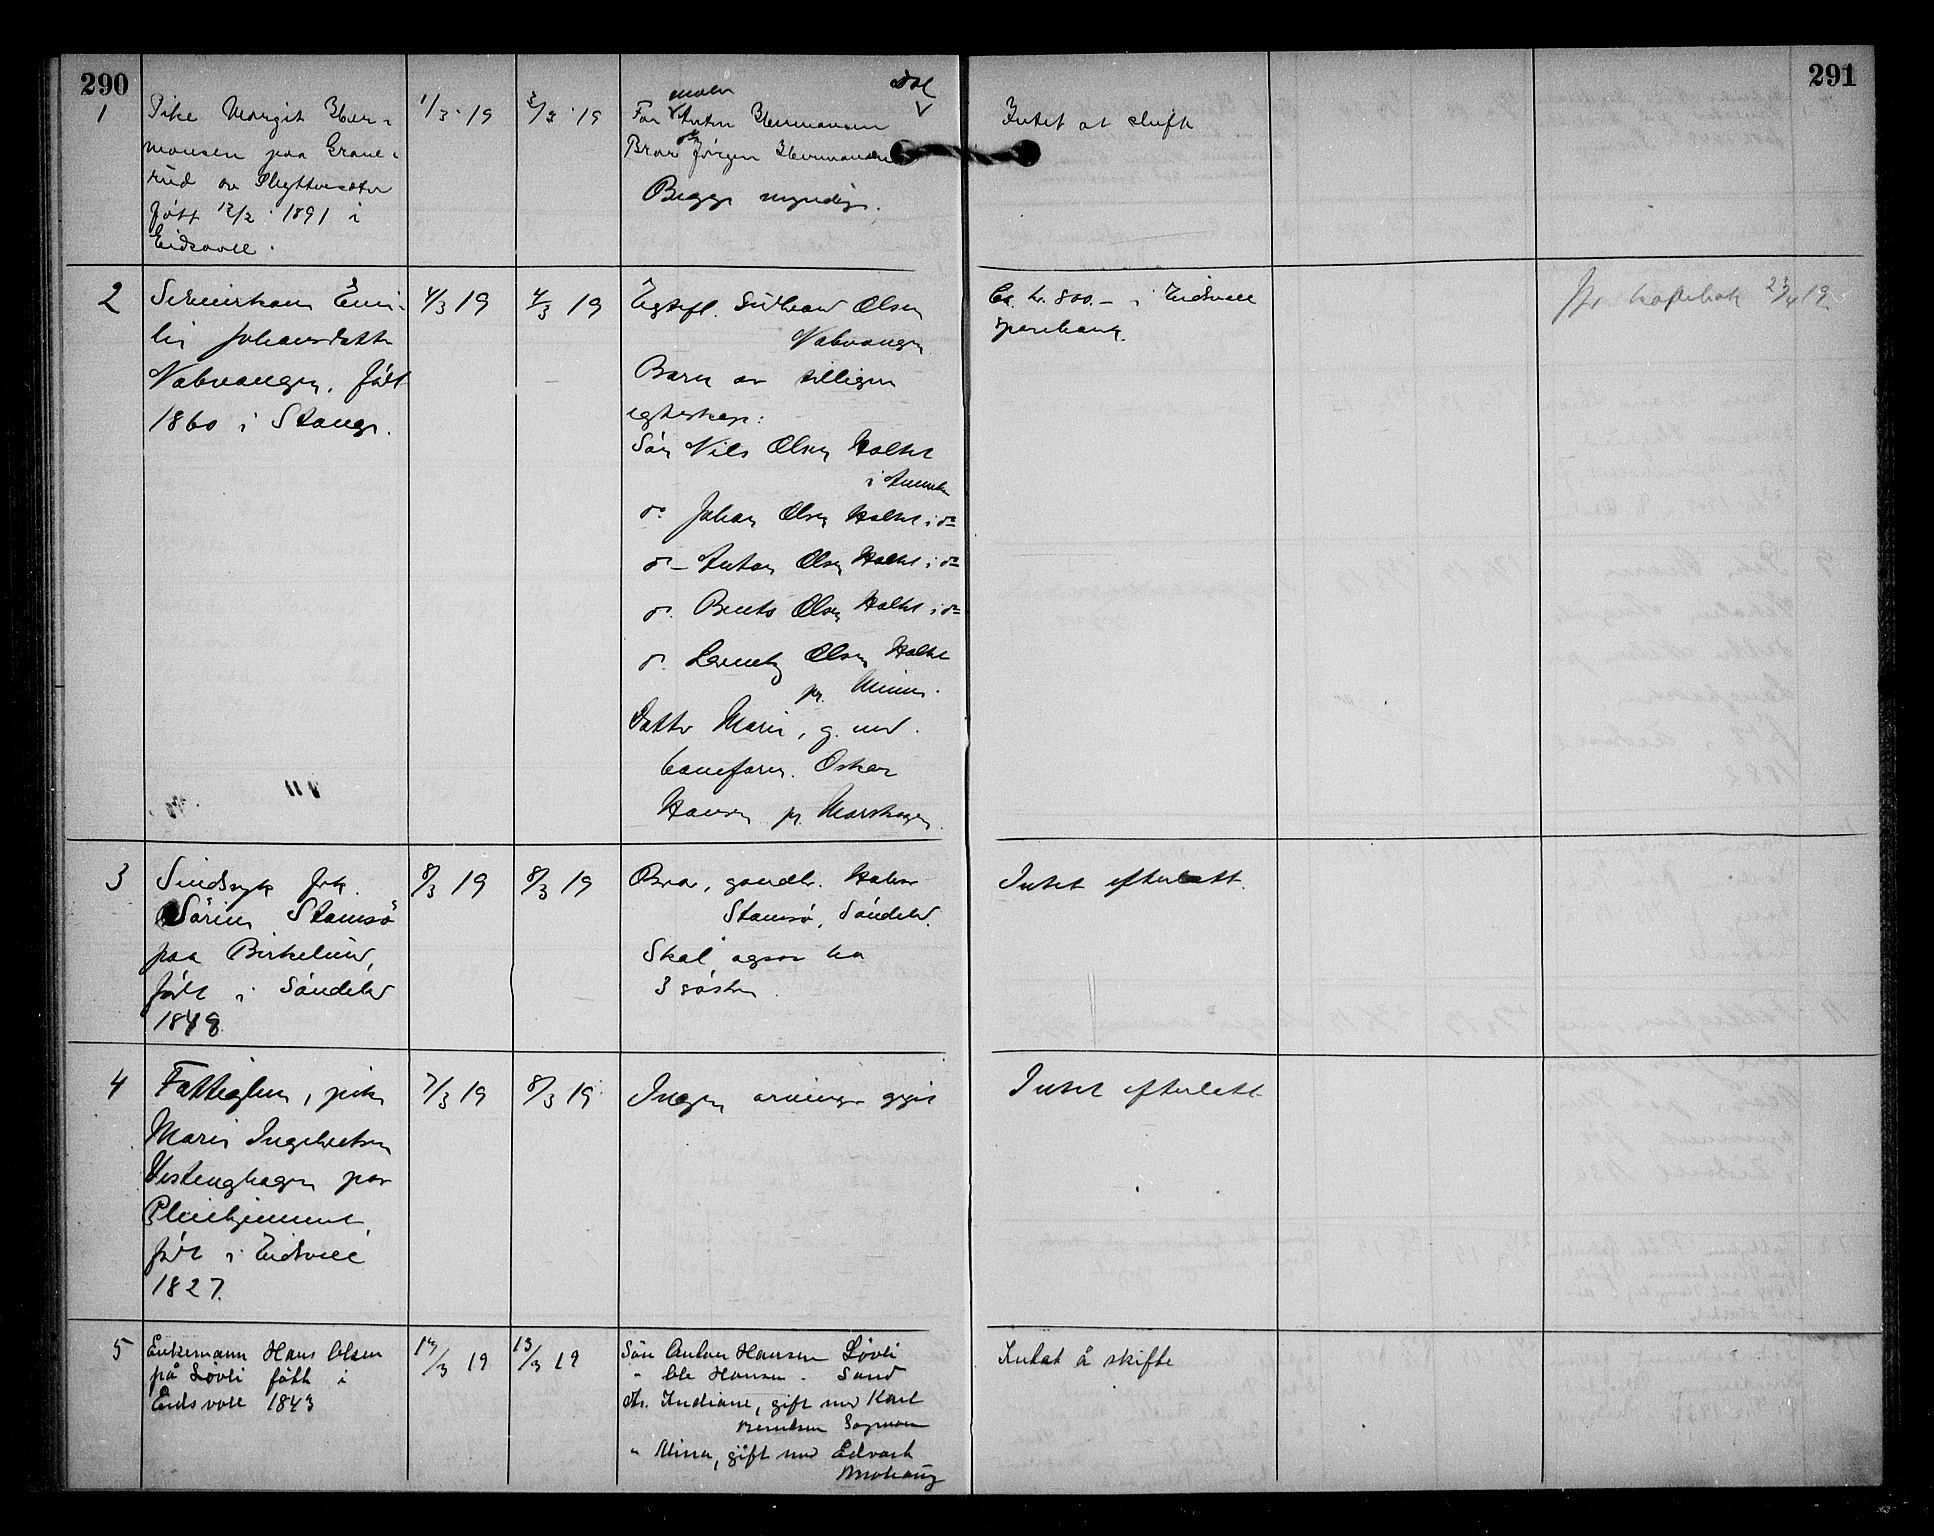 290
291
1
Pike Margit Her-
mansen paa Grane-
rud
født 12/2 · 1891 i
Eidsvoll.
1/3 · 19
3/3 · 19
Far Anton Hermansen
Bror Jørgen Hermansen
Begge myndige.
Dal
Intet at skifte
2
Emi-
lie Johansdatter
Nabvangen, født
1860 i Stange.
4/3 19
4/3 19
Egtefl. Olsen
Nabvangen
Barn av tidligere
egteskap:
Søn Nils Olsen Holter
i Amerika
do Johan Olsen Holter i do
do - Anton Olsen Holter i do
do. Bernts Olsen Holter i do
do. Olsen Holter
pr. Minne.
Datter Marie, g. med
baneform. Oskar
Hansen pr. Morskogen.
Ca. kr. 800.- i Eidsvoll
sparebank.
23/4 19
3
Sindsyk frk.
Sørine Stamsø
paa Birkelund,
født i Søndeled
1848
8/3 19
8/3 19
Bror, gaardbr.
Stamsø, Søndeled.
Skal ogsaa ha
3 søstre
Intet efterlatt.
4
Fattiglem, pike
Marie Ingebretsen
Vestenghagen paa
Pleiehjemmet,
født i Eidsvoll
1827.
7/3 19
8/3 19
Ingen arvinger opgit
Intet efterlatt
5
Enkemann Hans Olsen
på Løvli født i
Eidsvoll 1843
12/3 19
13/3 19
Søn Anton Hansen Løvli
" Ole Hansen - Sand
dtr. Indiane, gift med Karl
Berntsen
" Mina, gift med Edvart
Intet å skifte